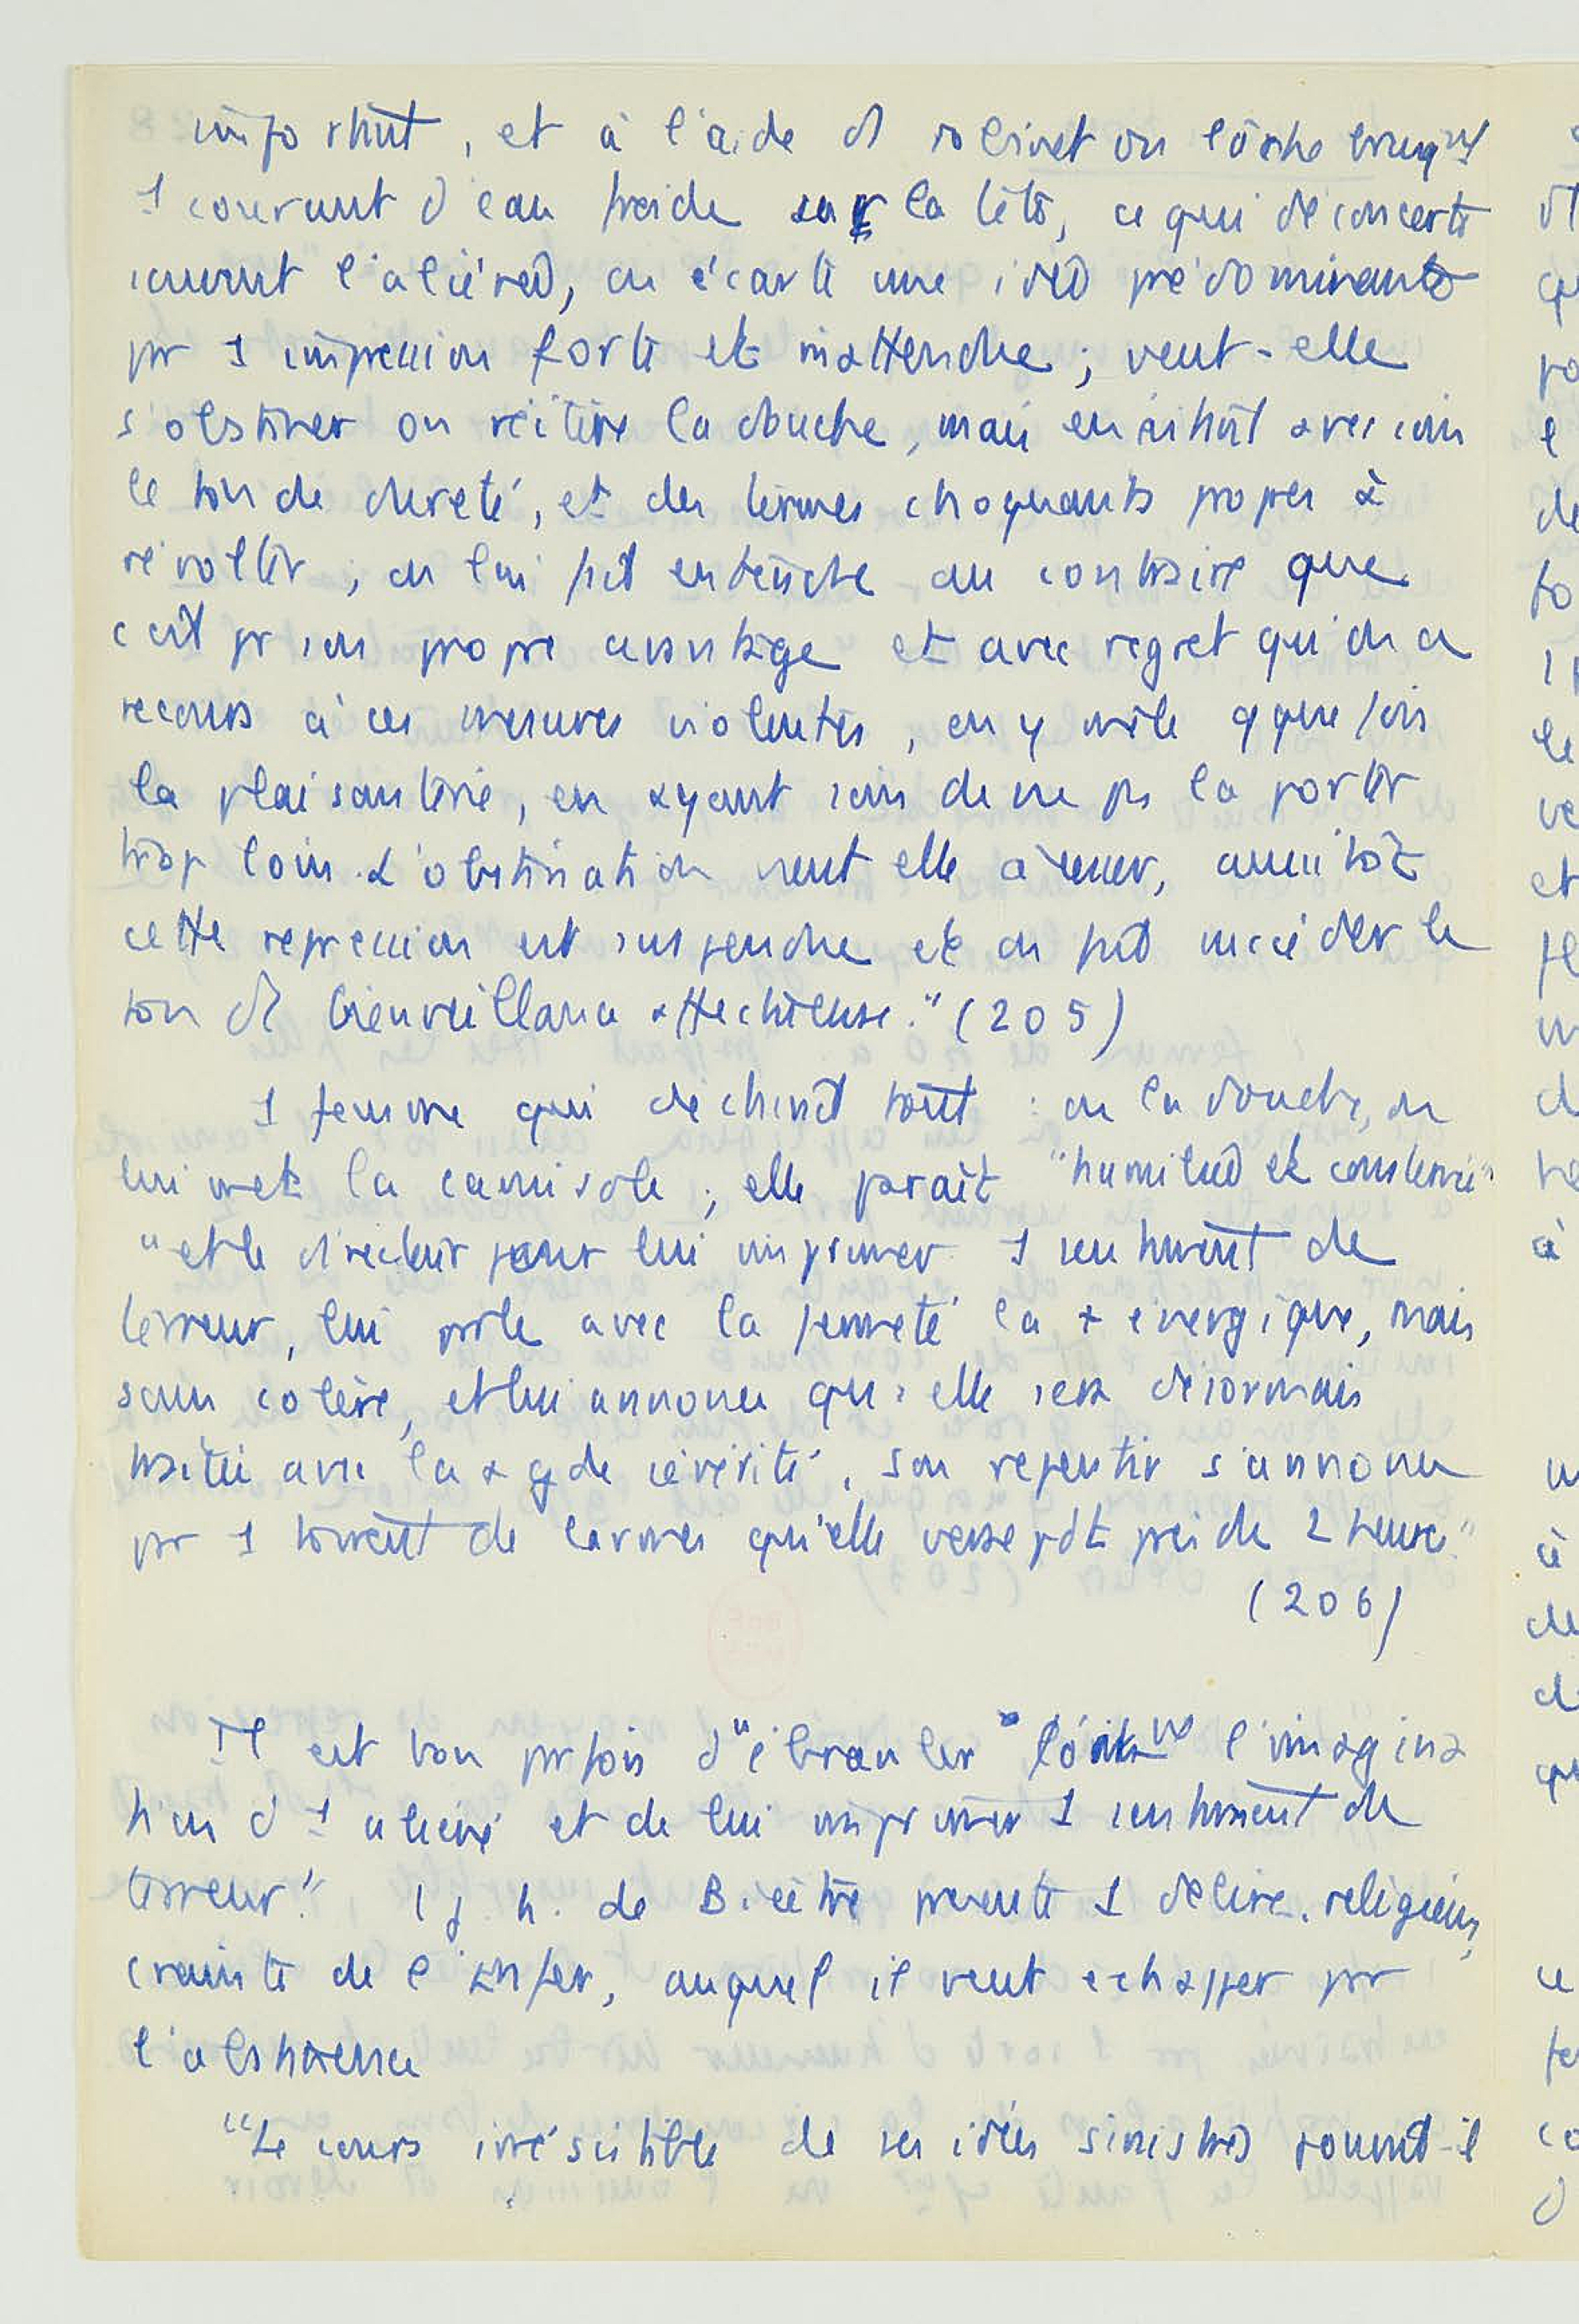 important, et à l'aide d robinet on lâche brusqt
1 courant d'eau froide sur la tête, ce qui déconcerte
souvent l'aliénée, on écarte une idée prédominante
pr 1 impression forte et inattendue ; veut-elle
s'obstiner on réitère la douche, mais en évitant avec soin
le ton de dureté, et des termes choquants propres à
révolter ; on lui fait entendre au contraire que
c'est pr son propre avantage et avec regret qu'on a
recours à ces mesures violentes, on y mêle qquefois
la plaisanterie, en ayant soin de ne ps la porter
trop loin. L'obstination veut elle cesser, aussitôt
cette repression est suspendue et on fait succéder le
ton de bienveillance affectueuse." (205)
1 femme qui déchirait tout : on la douche, on
lui met la camisole ; elle paraît "humiliée et consternée"
"et le directeur pour lui imprimer 1 sentiment de
terreur, lui parle avec la fermeté la + énergique, mais
sans colère, et lui annonce qu'elle sera désormais
traitée avec la + gde sévérité. Son repentir s'annonce
pr 1 torrent de larmes qu'elle verse pdt près de 2 heures."
(206)
Il est bon prfois d'"ébranler fortemt l'imagina
tion d'1 aliéné et de lui imprimer 1 sentiment de
terreur". 1 j. h. de Bicêtre présente 1 délire religieux,
crainte de l'enfer, auquel il veut echapper pr
l'abstinence
"Le cours irrésistible de ses idées sinistres pouvait-il